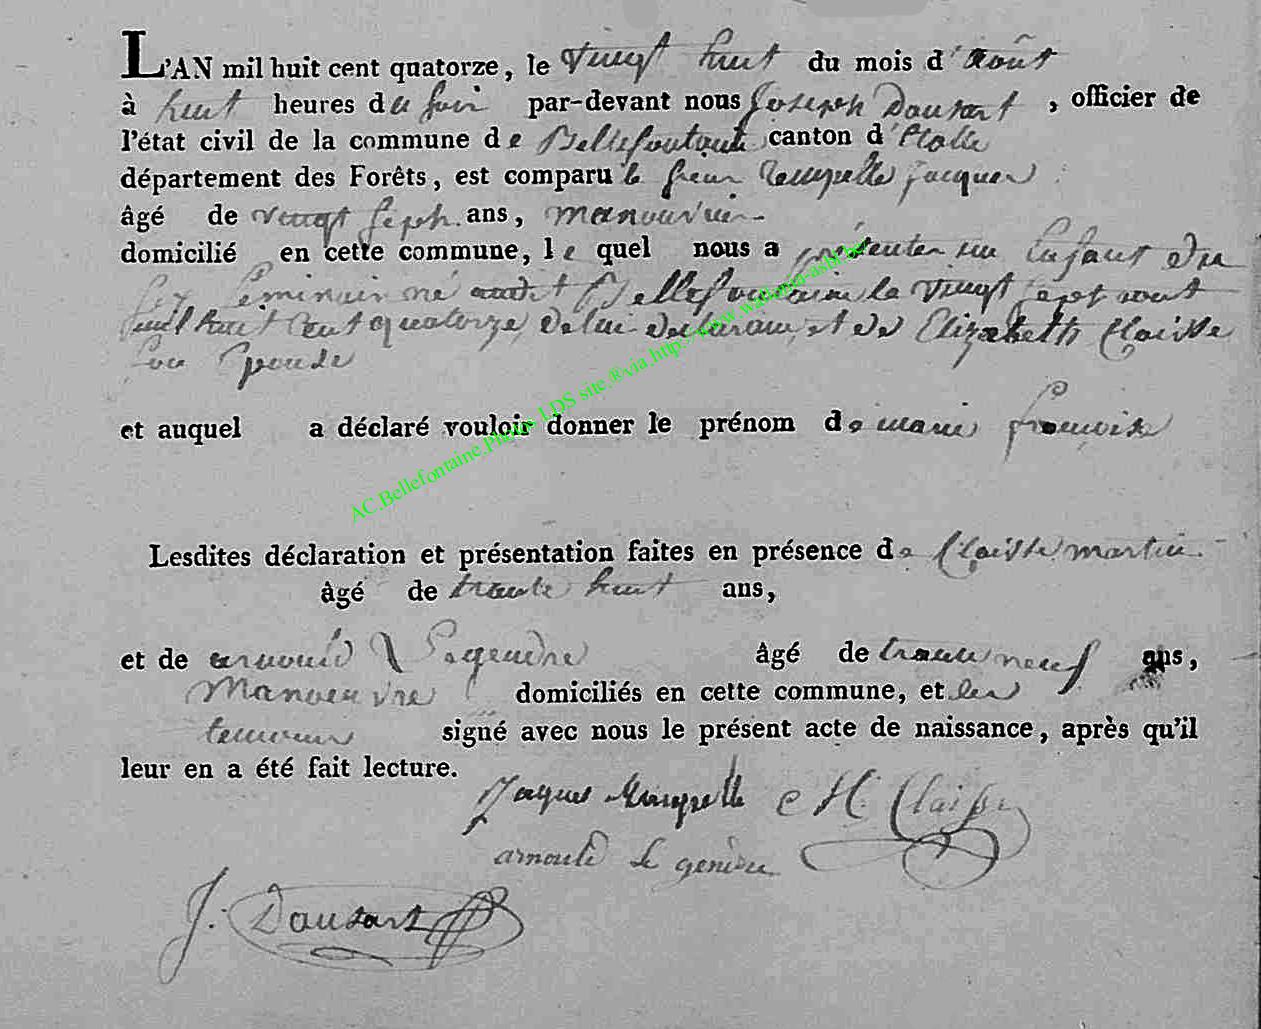 L'AN mil huit cent quatorze, le vingt huit du mois d'Août
à huit heures du soir par-devant nous Joseph Dausart, officier de
l'état civil de la commune de Bellefontaine canton d'Etalle
département des Forêts, est comparu le sieur Jacques
âgé de vingt sept ans, manouvrier
domicilié en cette commune, le quel nous a présenter un Enfant du
Sex feminin né audit Bellefontaine le vingt sept aout
mil huit Cent quatorze, de lui declarant, et de Elizabeth Claisse
son Epouse
et auquel a déclaré vouloir donner le prénom de marie françoise
AC.Bellefontaine.Photos LDS site.®via.http://www.wallonia-asbl.be/
Lesdites déclaration et présentation faites en présence de Claisse martin
âgé de trente huit ans,
et de arnould Legendre âgé de trente neuf ans,
Manoeuvre domiciliés en cette commune, et les
temoins signé avec nous le présent acte de naissance, après qu'il
leur en a été fait lecture.
Jaques M. Claisse
arnould Le gendre
J. Dausart